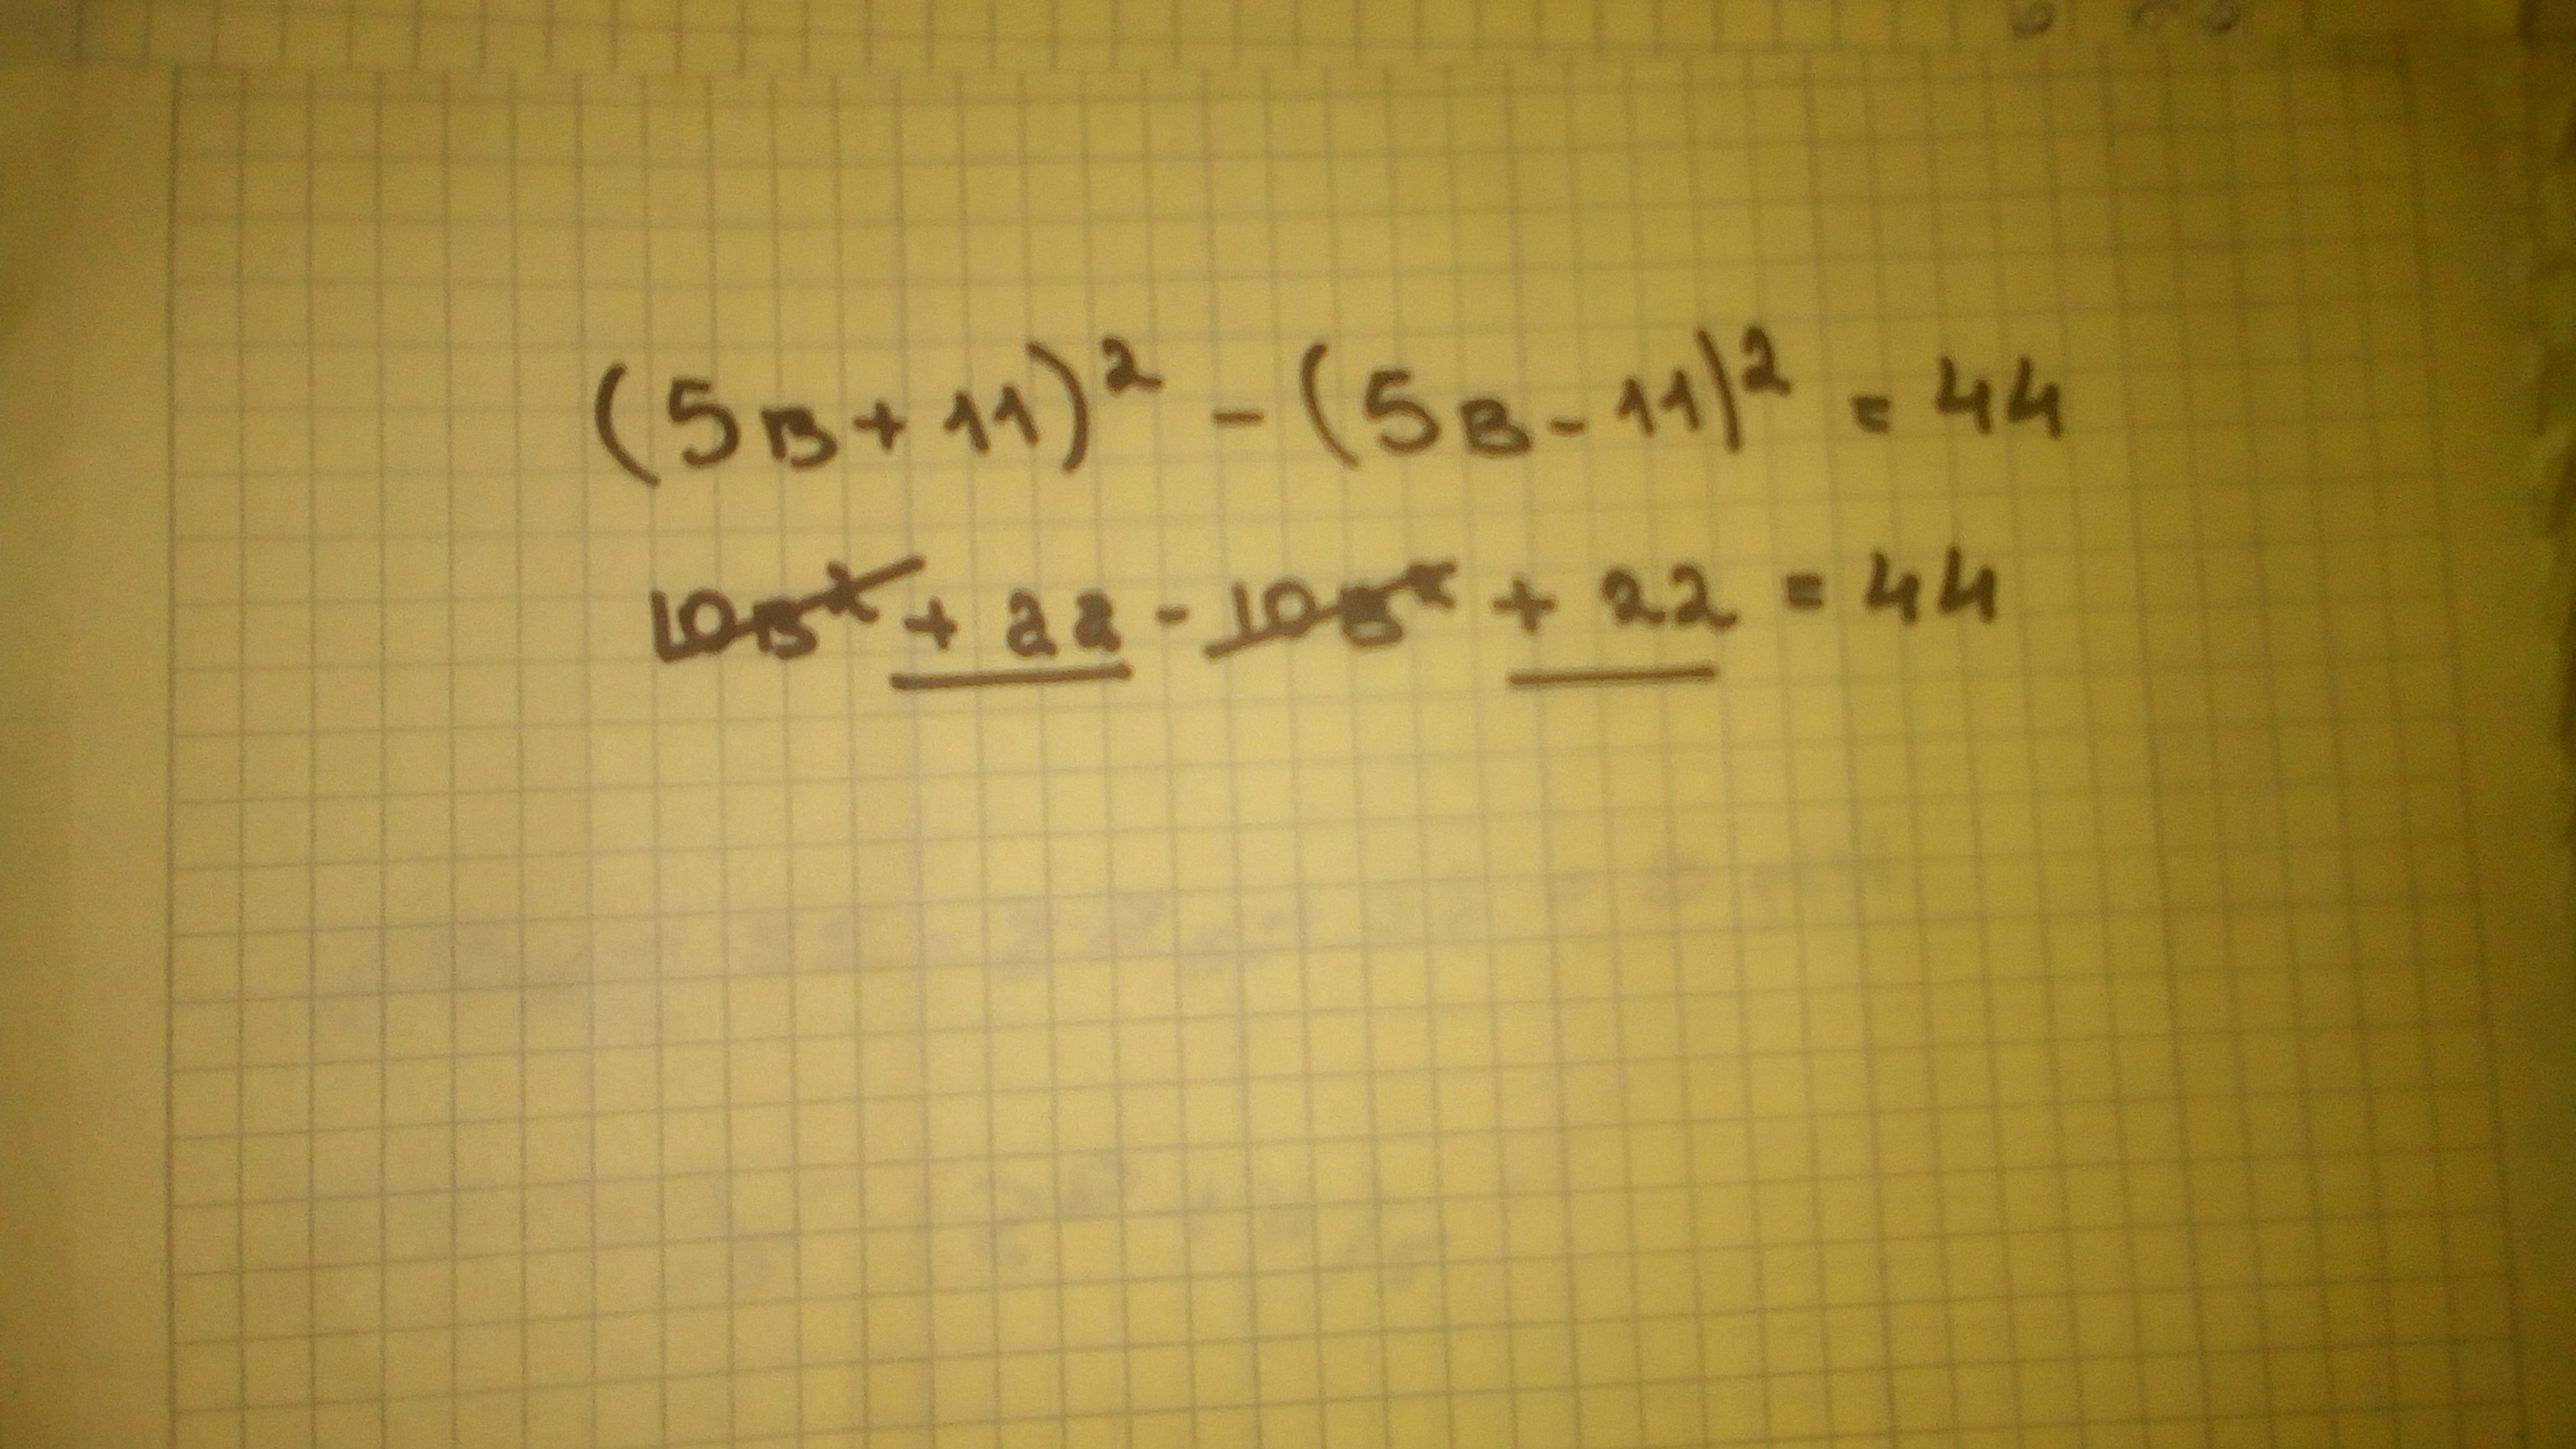 (5в+11)² - (5в-11)² = 44
10в² + 22 - 10в² + 22 = 44